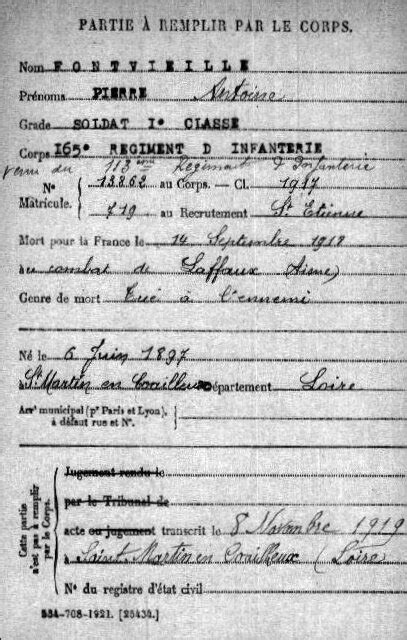 PARTIE À REMPLIR PAR LE CORPS.
Nom FONTVIEILLE
Prénoms PIERRE Antoine
Grade SOLDAT Iº CLASSE
Corps I65º REGIMENT D INFANTERIE
venu du 118eme Régiment d'Infanterie
Nº 13868 au Corps. — Cl. 1917
Matricule. 719 au Recrutement St Etienne
Mort pour la France le 14 Septembre 1918
au combat de Laffaux (Aisne)
Genre de mort Tué à l'ennemi
Né le 6 Juin 1897
à St Martin en Coailleux Département Loire
Arrt municipal (pr Paris et Lyon),
à défaut rue et Nº.
Cette partie
n'est pas à remplir
par le Corps.
Jugement rendu le
par le Tribunal de
acte ou jugement transcrit le 8 Novembre 1919
à Saint Martin en Coailleux (Loire)
Nº du registre d'état civil
534-708-1921. [26434.]